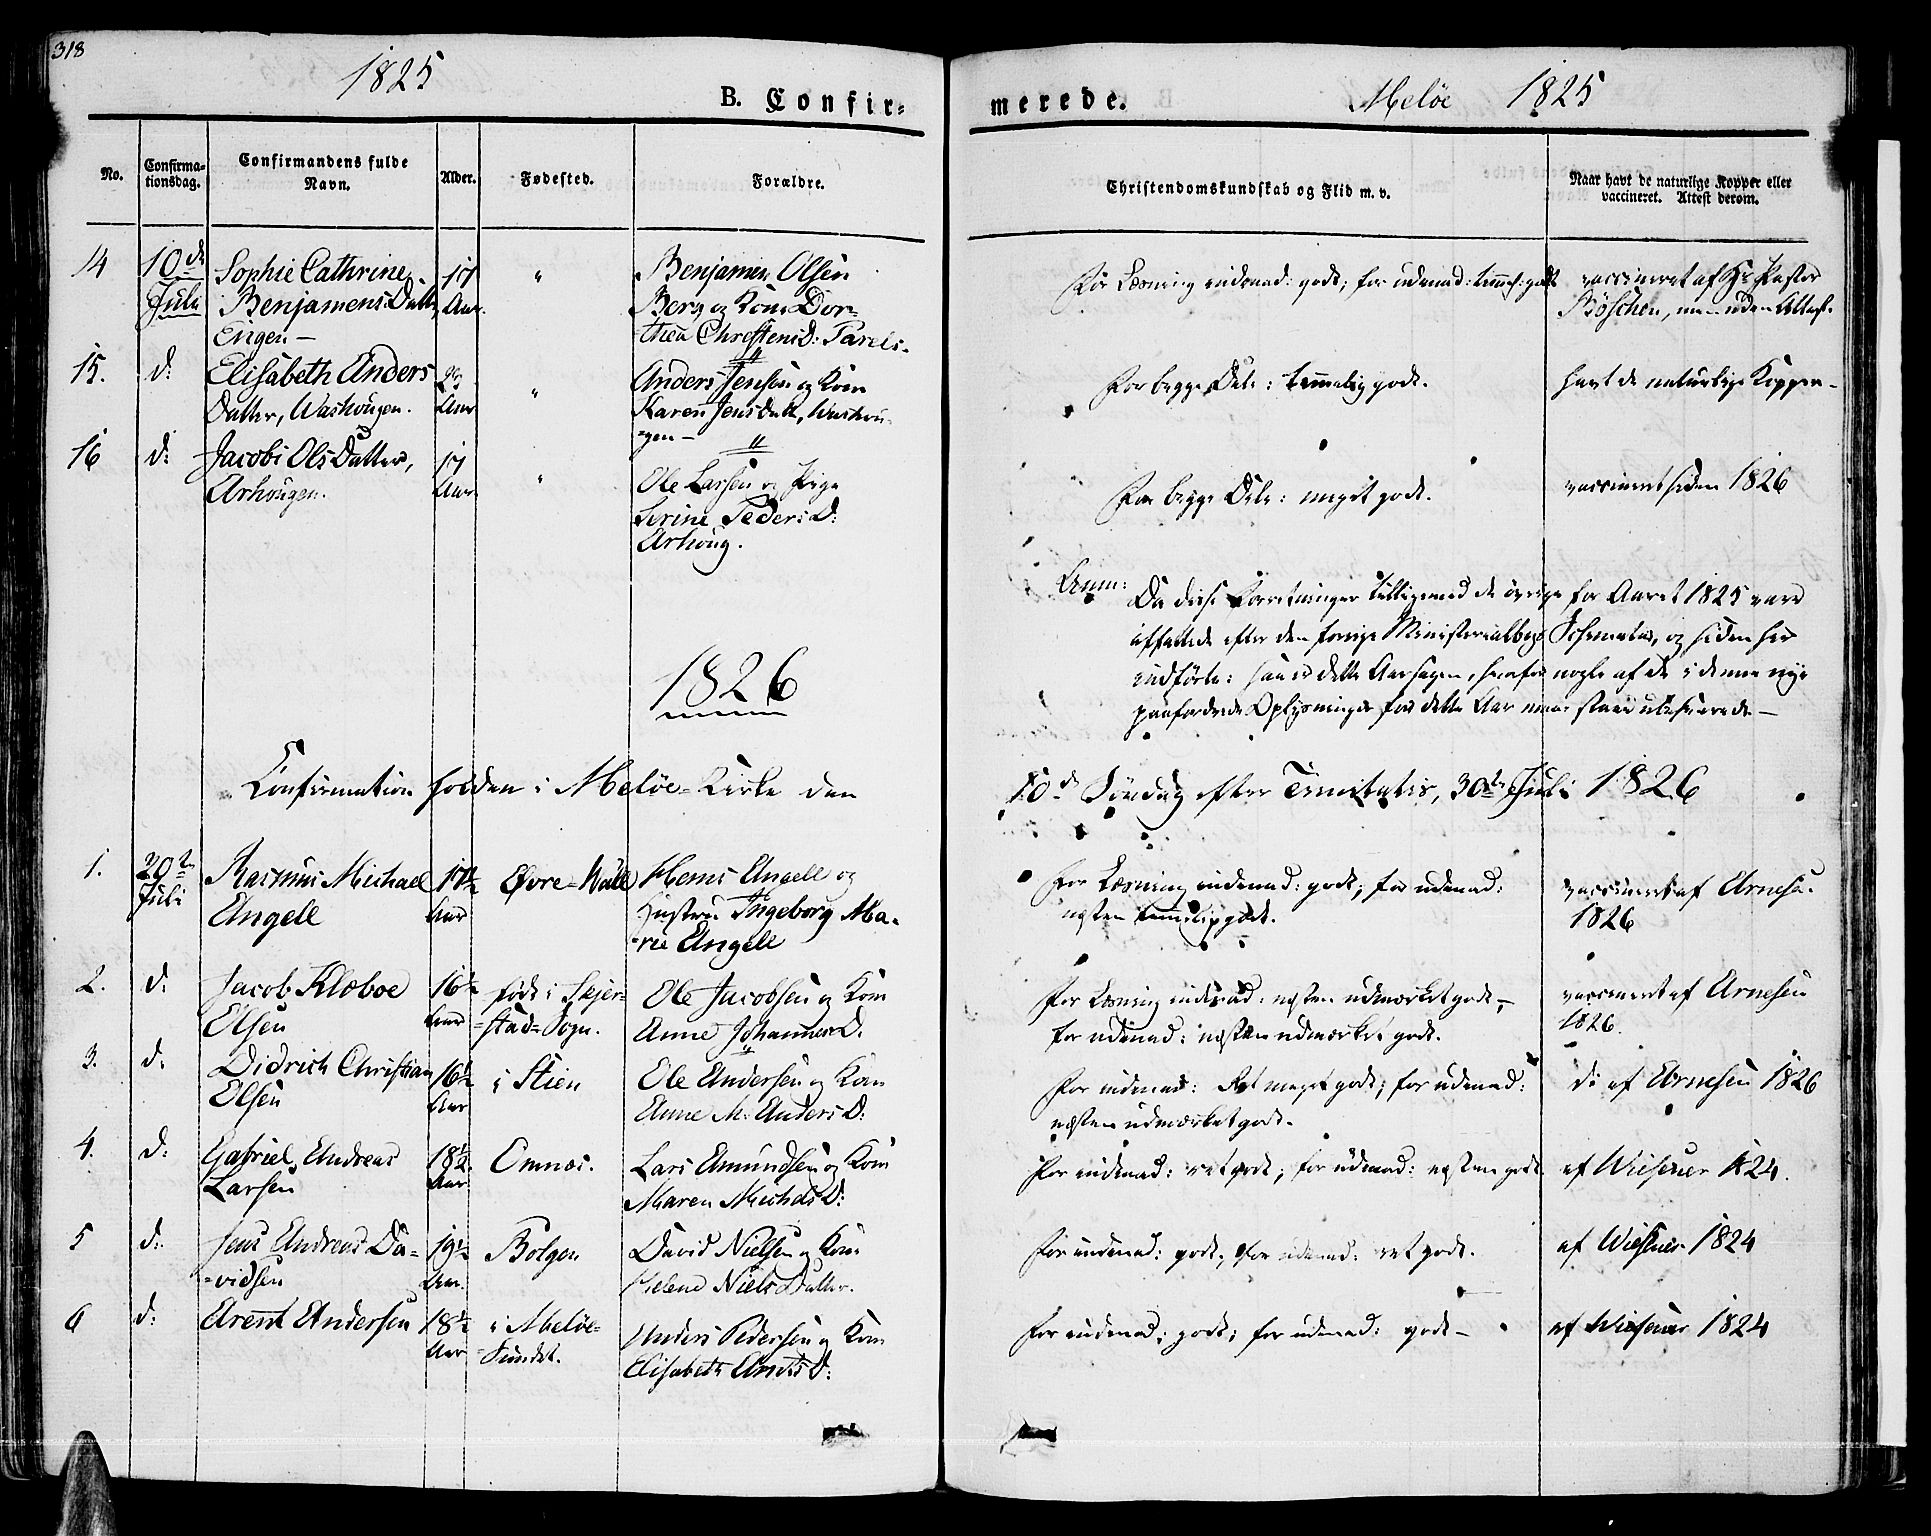 318
1825
B. Confir-
merede.
Meløe 1825
No.
Confirma-
tionsdag.
Confirmandens fulde
Navn.
Alder.
Fødested.
Forældre.
Christendomskundskab og Flid m. v.
Naar havt de naturlige Kopper eller
vaccineret. Attest derom.
14
10de
Juli
Sophie Cathrine
Benjamens Datter
Engen —
17
Aar.
"
Benjamen Olsen
Berg og Kone Dor-
thea Christens D:
For Læsning indenad: godt; for udenad: temml: godt
vaccineret af Hr Pastor
Böschen, men uden Attest.
15.
d:
Elisabeth Anders
Datter, Washougen.
Aar
"
Anders Jensen og Kone
Karen Jens Datt, Washou-
gen —
For begge Dele: temmelig godt.
havt de naturlige Kopper —
16
d:
Jacobi Ols Datter,
Arhougen.
17
Aar
"
Ole Larsen og Pige
Serine Peders D:
Arhoug.
For begge Dele: meget godt.
vaccineret siden 1826
Anm:
Da disse Forretninger tilligemed de øvrige for Aaret 1825 vare
affattede efter den forrige Ministerialbogs Schemata, og siden her
indførte: saa er dette Aarsagen, hvorfor nogle af de i denne nye
paafordrede Oplysninger for dette Aar maae staae ubesvarede —
1826
Confirmation holden i Meløe-Kirke den
10de Søndag efter Trinitatis, 30te Juli 1826
1.
Juli
Rasmus Michael
Angell
17½
Aar
Øvre-Wall
Hans Angell og
Hustru Ingeborg Ma-
rie Angell
For Læsning indenad: godt; for udenad:
næsten temmelig godt.
vaccineret af Arnesen
1826
2.
d:
Jacob Kloboe
Olsen
16½
Aar
født i Skjer-
stad-Sogn.
Ole Jacobsen og Kone
Anne Johannes D.
For Læsning indenad: næsten udmærket godt,
for udenad: næsten udmærket godt.
vaccineret af Arnesen
1826.
3.
d:
Didrich Christian
Olsen
16½
Aar
i Stien
Ole Andersen og Kone
Anne M. Anders D:
For indenad: Ret meget godt; for udenad:
næsten udmærket godt.
d: af Arnesen 1826
4.
d:
Gabriel Andreas
Larsen
18½
Aar
Omnæs.
Lars Amundsen og Kone
Maren Michels D:
For indenad: ret godt; for udenad: næsten godt
af Wiesener 1824.
5
d:
Jens Andreas Da-
vidsen
19½
Aar.
Bolgen
David Nielsen og Kone
Helene Niels Datter.
For indenad: godt; for udenad: ret godt.
af Wiesener 1824
6
d:
Arent Andersen
18½
Aar
i Meløe-
Sundet.
Anders Pedersen og Kone
Elisabeth Anders D:
For indenad: godt; for udenad: godt —
af Wiesener 1824